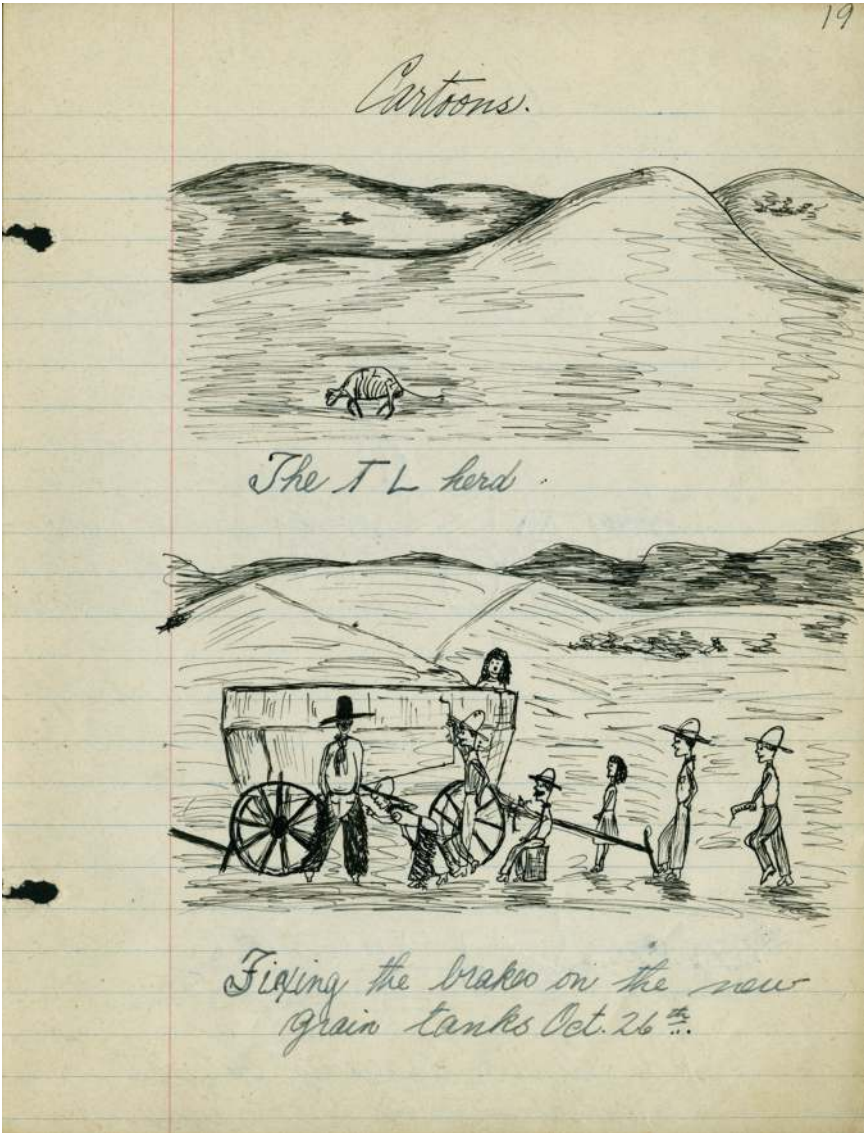 19
Cartoons.
The T L herd.
Fixing the brakes on the new
grain tanks Oct. 26th.